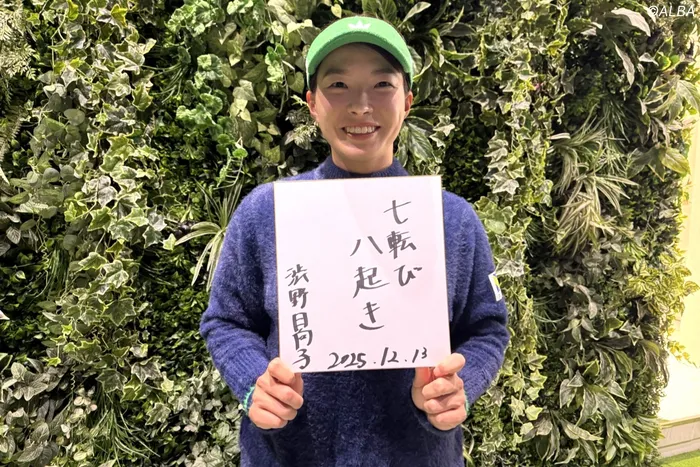 ©ALBA
七転び
八起き
渋野日向子
2025.12.13